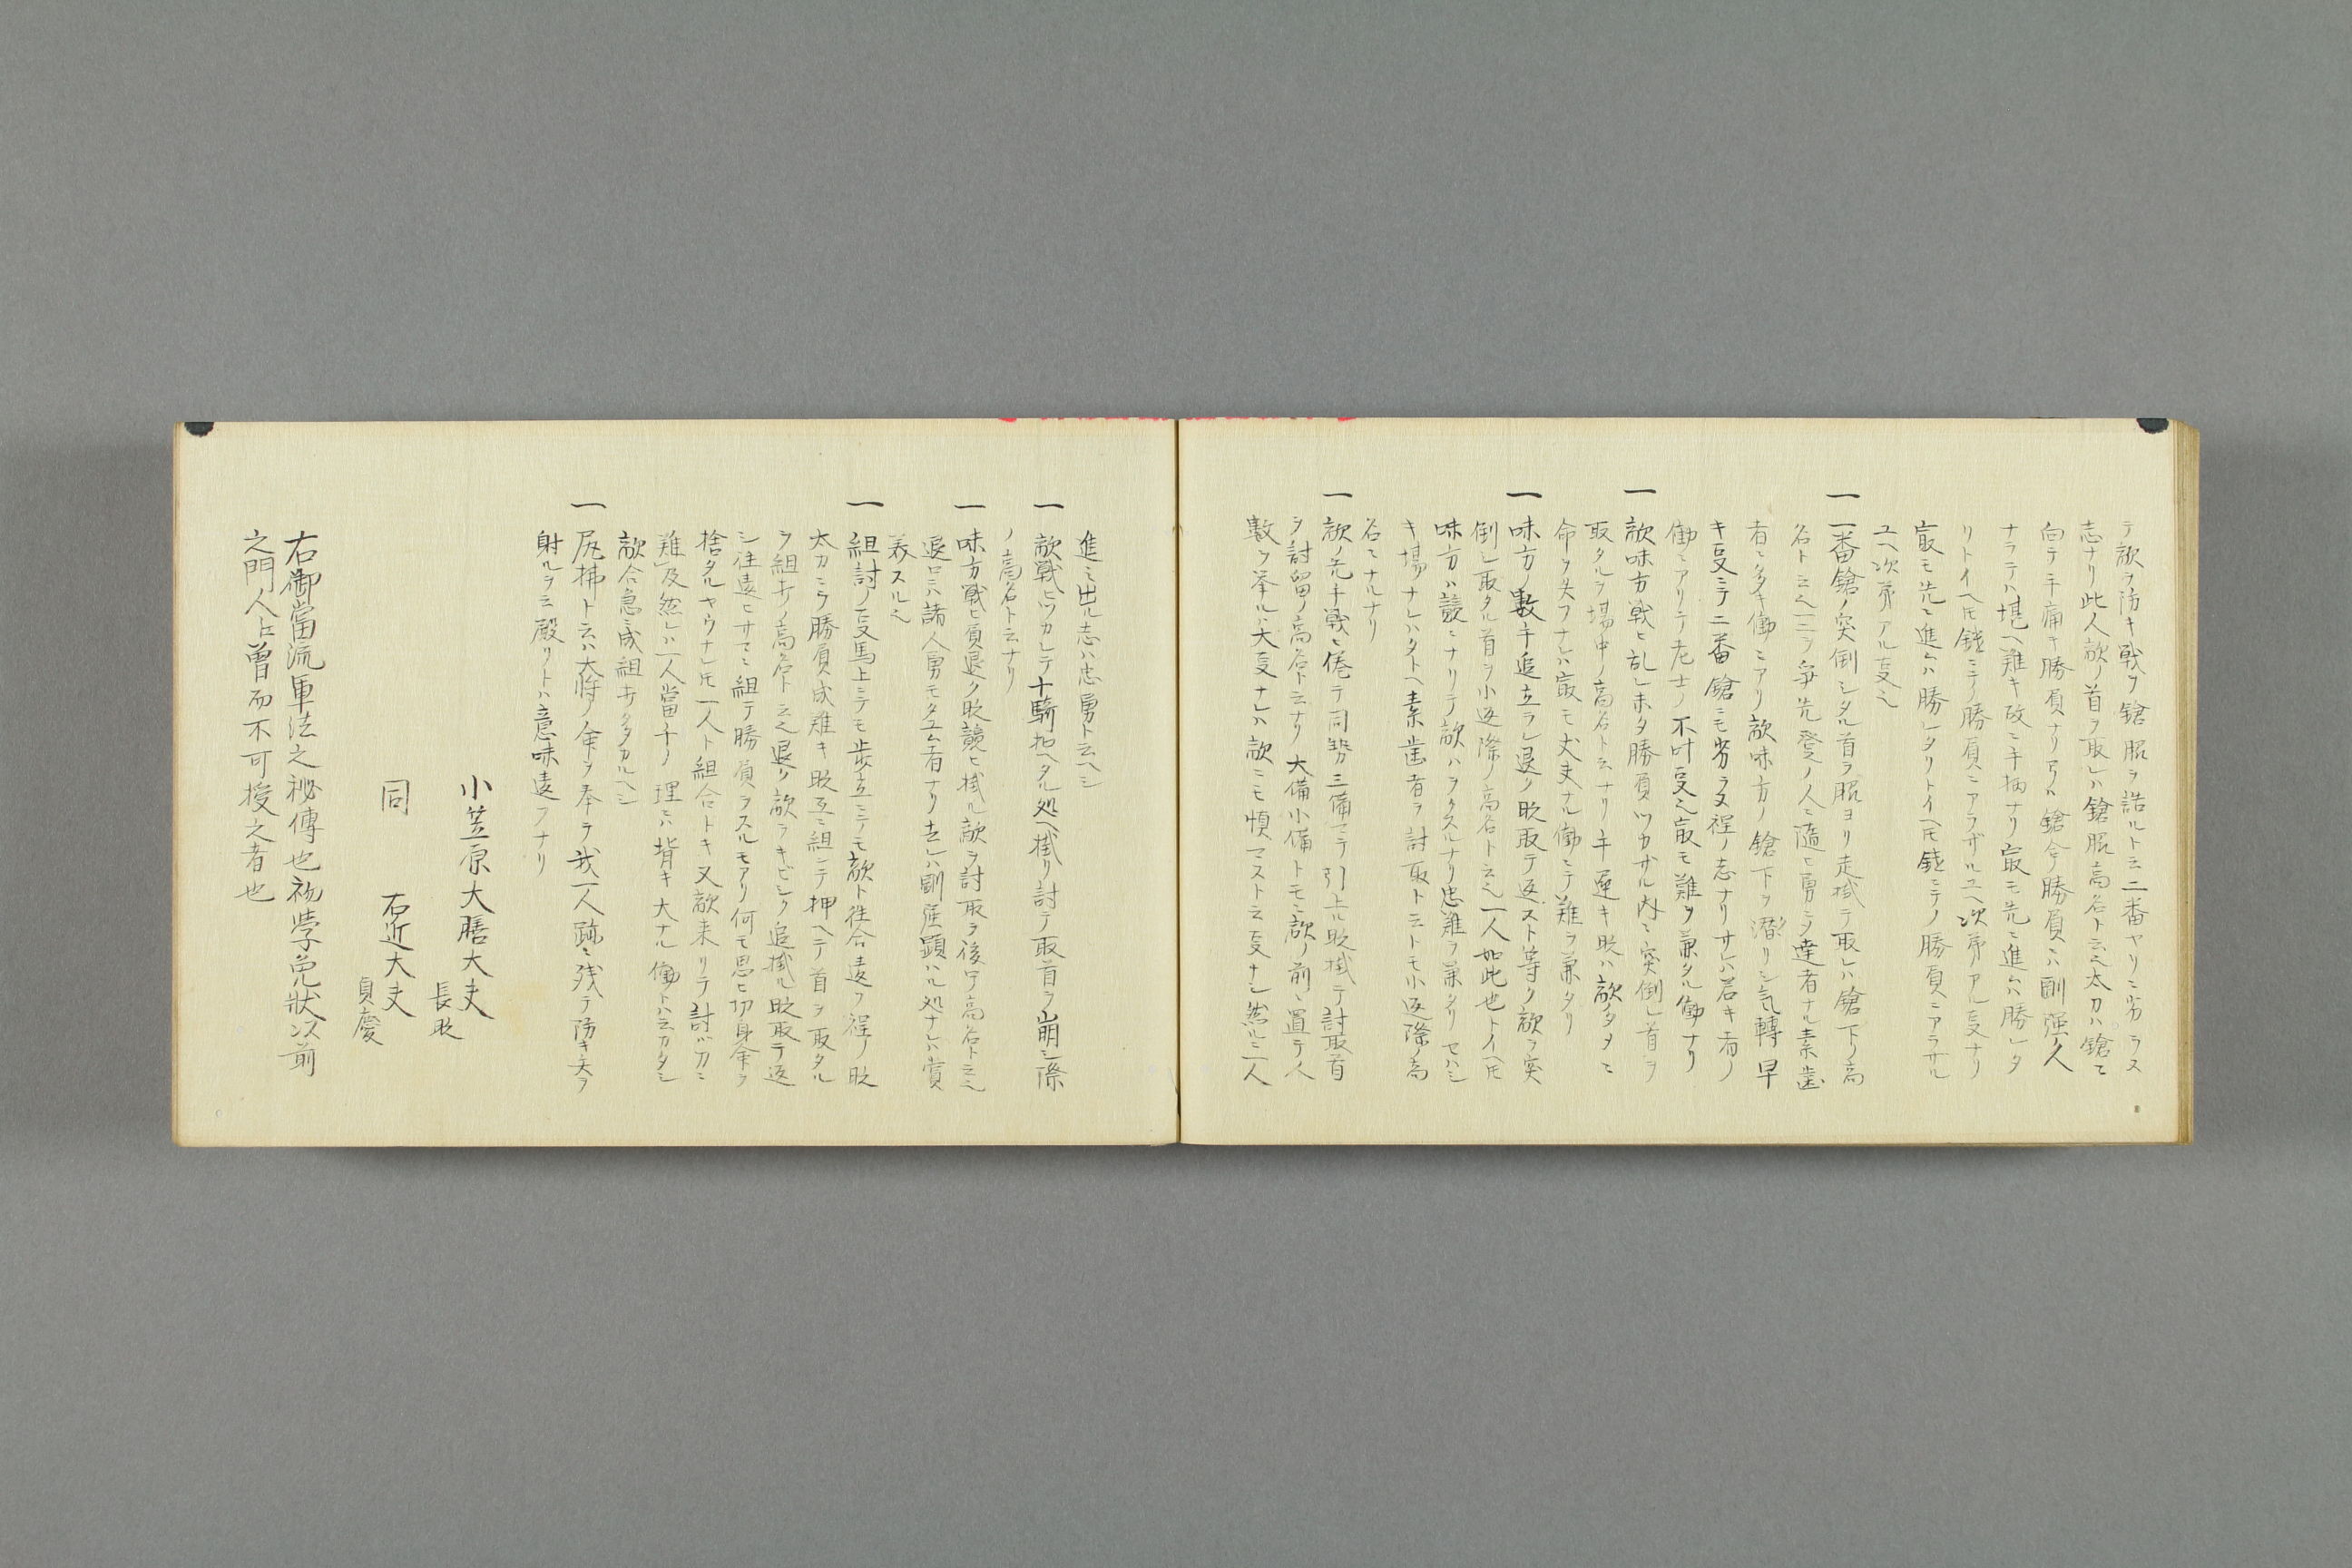 テ敵ヲ防キ戦ヲ鎗脇ヲ詰ルト云二番ヤリニ劣ラス
志ナリ此人敵ノ首ヲ取レハ鎗脇高名ト云々太刀ハ鎗ニ
向テ手痛キ勝負ナリ弓ハ鎗合勝負ニハ剛強ノ人
ナラテハ堪ヘ難キ故ニ手柄ナリ最モ先ニ進ムハ勝レタ
リトイヘ𪜈錢ミテノ勝負ニアラザルユヘ次第アル叓ナリ
最モ先ニ進ムハ勝レタリトイヘ𪜈 ニテノ勝負ニアラサル
ユヘ次第アル叓也
一 一番鎗ノ突倒シタル首ヲ脇ヨリ走掛テ取レハ鎗下ノ高
名ト云也 争先登ノ人ニ随ヒ勇ミヲ達者ナル素歯
者ニ多キ働ニアリ敵味方ノ鎗下ヲ潜リシ気轉早
キ叓ニテ二番鎗ニモ劣ラヌ程ノ志ナリサレハ若キ者ノ
働ニアリテ老士ノ不叶叓也最モ難ヲ兼タル働ナリ
一 敵味方戦ヒ乱レ未タ勝負ツカザル内ニ突倒シ首ヲ
取タルヲ場中ノ高名ト云ナリ手遅キ時ハ敵ノタメニ
命ヲ失フナレハ最モ丈夫ナル働ニテ難ヲ兼タリ
一 味方ノ数手追立ラレ退ク時取テ返スト等ク敵ヲ突
倒シ取タル首ヲ小返際ノ高名ト云也一人如此也トイヘ𪜈
味方ハ競ニナリテ敵ハヲクスルナリ忠難ヲ兼タリセハシ
キ場ナレハタトヘ素歯者ヲ討取ト云トモ小返際ノ高
名ニナルナリ
一 敵ノ先手戦ヒ倦テ同勢三備マテ引上ル時掛テ討取首
ヲ討留ノ高名ト云ナリ大備小備トモニ敵ノ前ニ置テ人
数ヲ挙ルハ大叓ナレハ敵ニモ慎マスト云叓ナシ然ルニ一人
進ミ出ル志ハ忠勇ト云ヘシ
一 敵戦ヒツカレテ十騎扣ヘタル処ヘ掛リ討テ取首ヲ崩シ際
ノ高名ト云ナリ
一 味方戦ヒ負退ク時競ヒ掛ル敵ヲ討取ヲ後口高名ト云也
退口ニハ諸人勇モタユム者ナリ去レハ剛 顕ハル処ナレハ賞
美スル也
一 組討ノ叓馬上ニテモ歩立ニテモ敵ト往合違フ程ノ時
太刀ニテ勝負成難キ時互ニ組ンテ押ヘテ首ヲ取タル
ヲ組討ノ高名ト云也退ク敵ヲキビシク追掛ル時取テ返
シ往違ヒサマニ組テ勝負ヲスルモアリ何モ思ヒ切身命ヲ
捨タルヤウナレ𪜈一人ト組合トキ又敵来リテ討ハ力ニ
難レ及然レハ一人當千ノ理ニハ背キ大ナル働トハ云カタシ
敵合急ニ成組討多カルヘシ
一 尻拂ト云ハ大将ノ命ヲ奉テ我一人跡ニ残テ防キ矢ヲ
射ルヲ云殿リトハ意味違フナリ
小笠原大膳大夫
長時
同　右近大夫
貞慶
右御當流軍法之秘傳也初學免狀ンス前
之門人ニ曽而不可授之者也